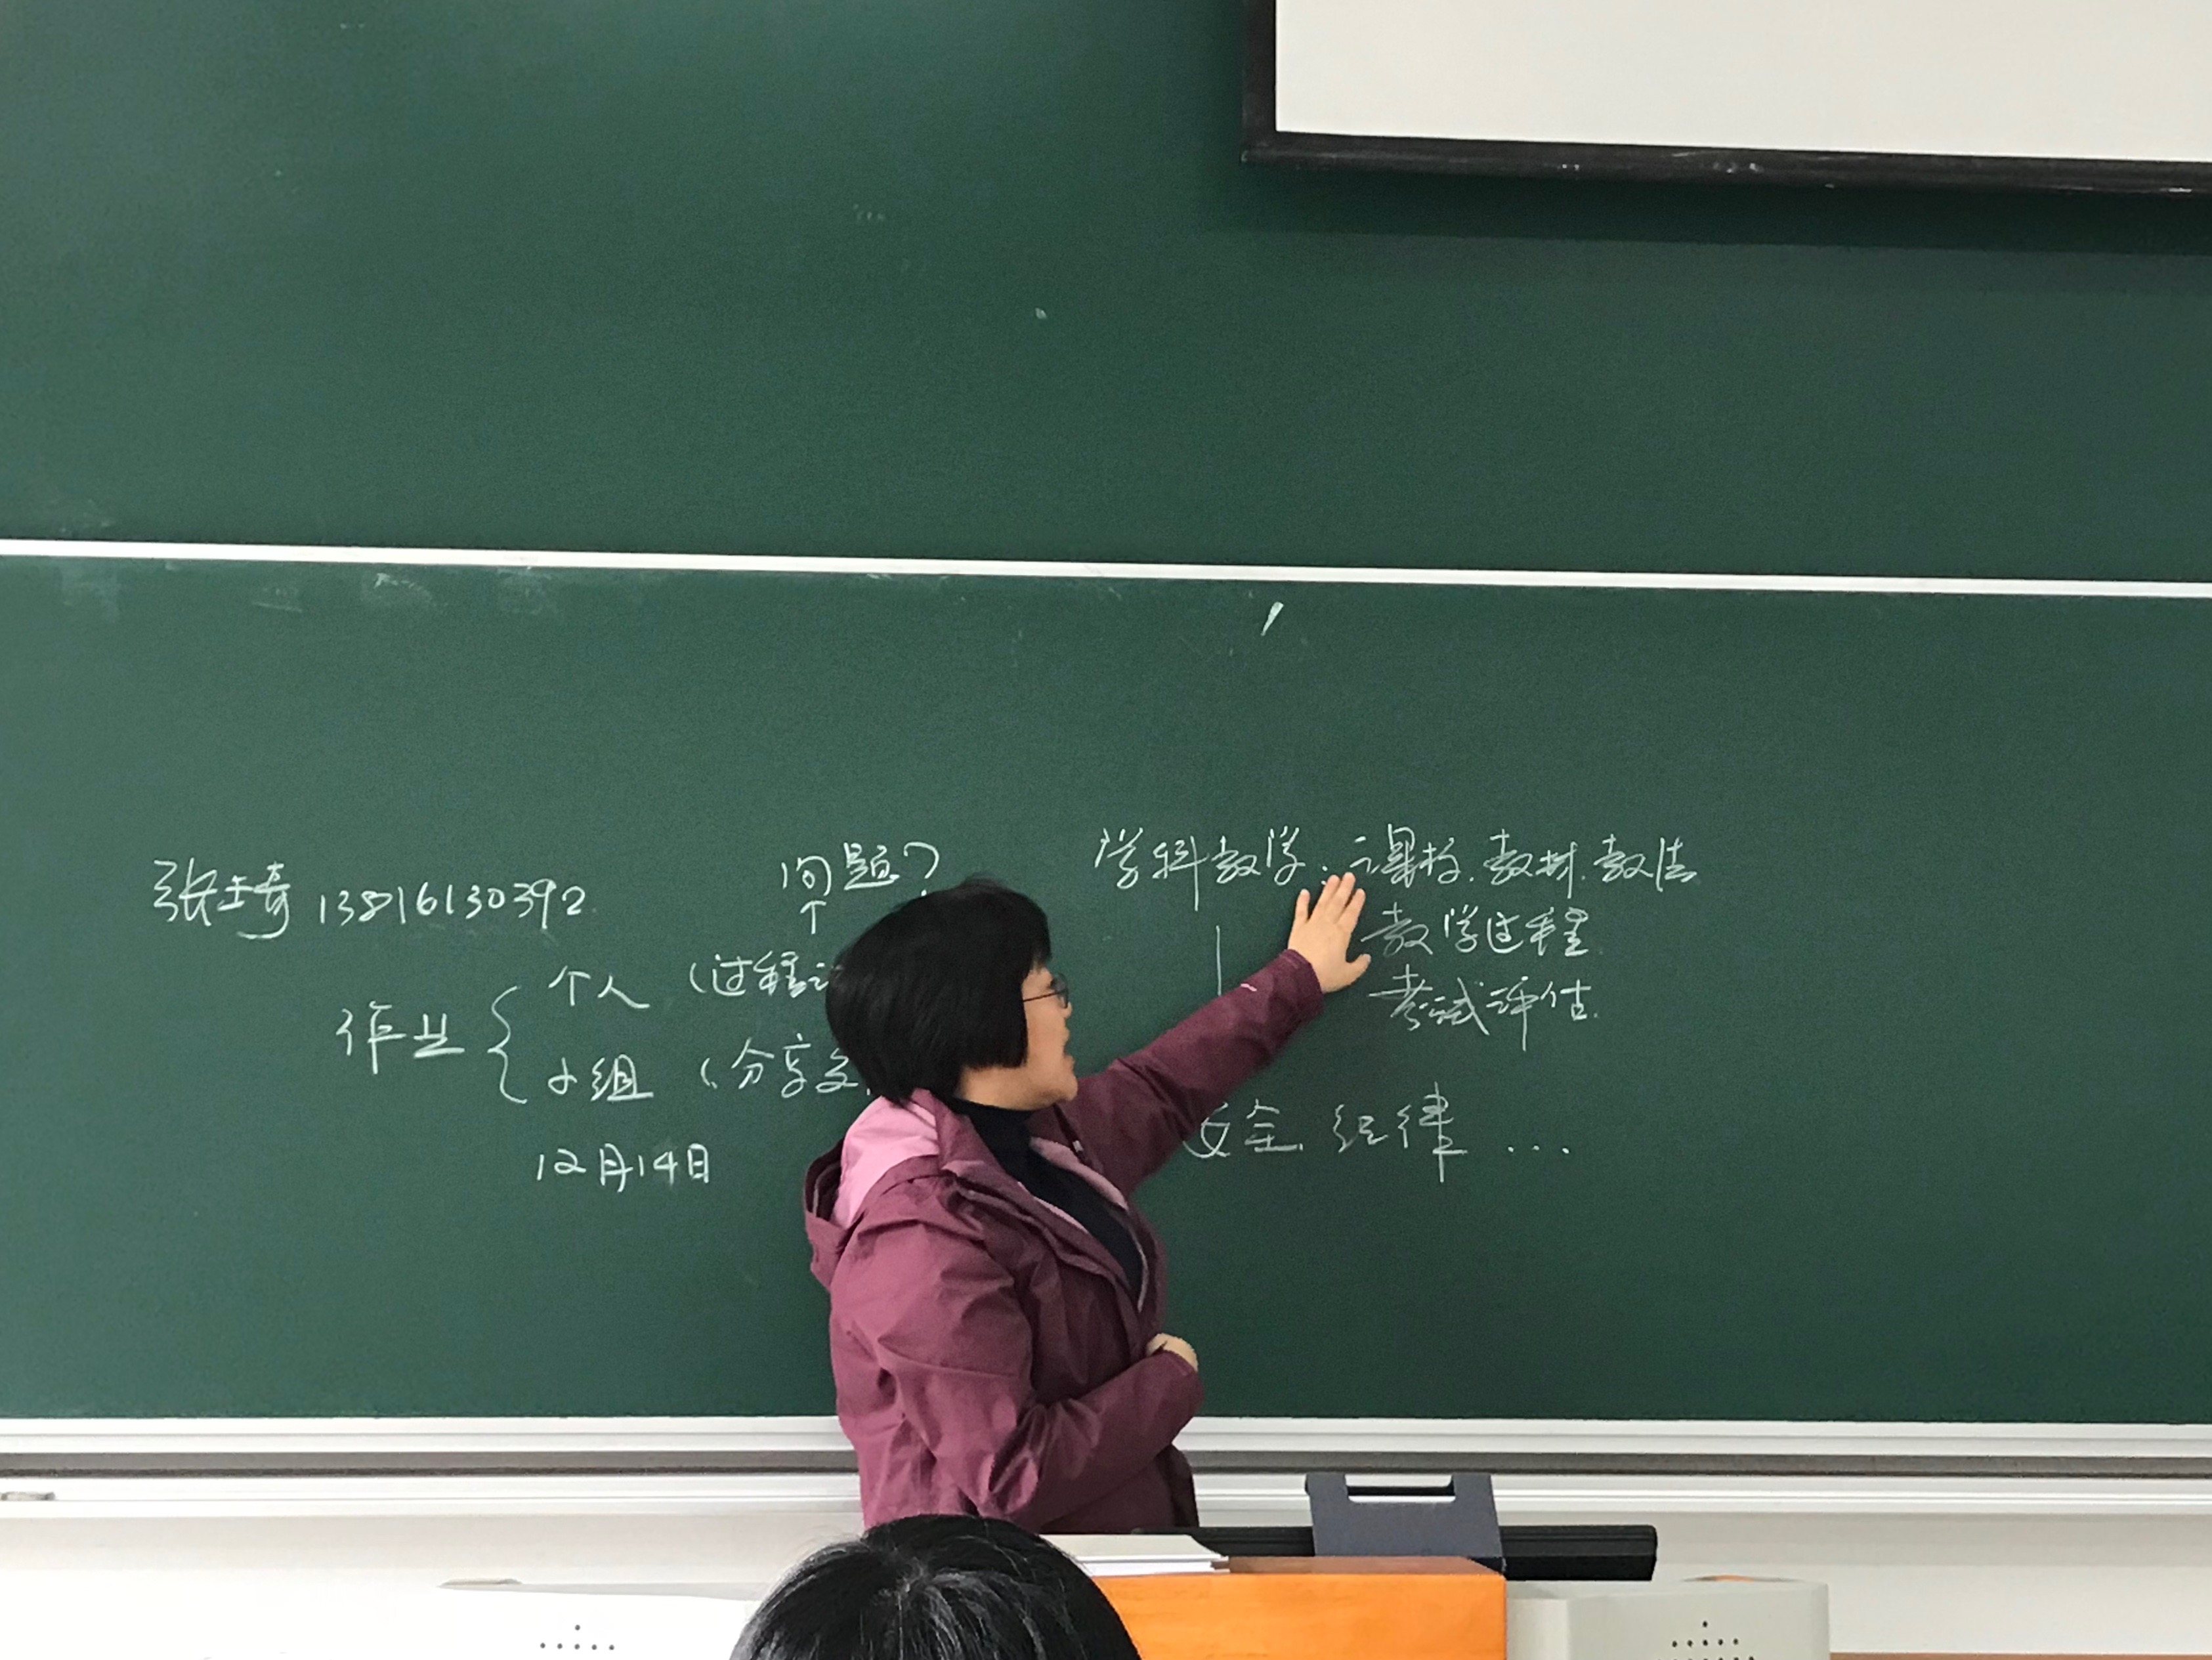 张士奇 13816130392
问题?
作业
个人 (过程
小组 (分享交
12月14日
学科教学: 课标. 教材. 教法
教学过程.
考试评估.
安全. 纪律 ...